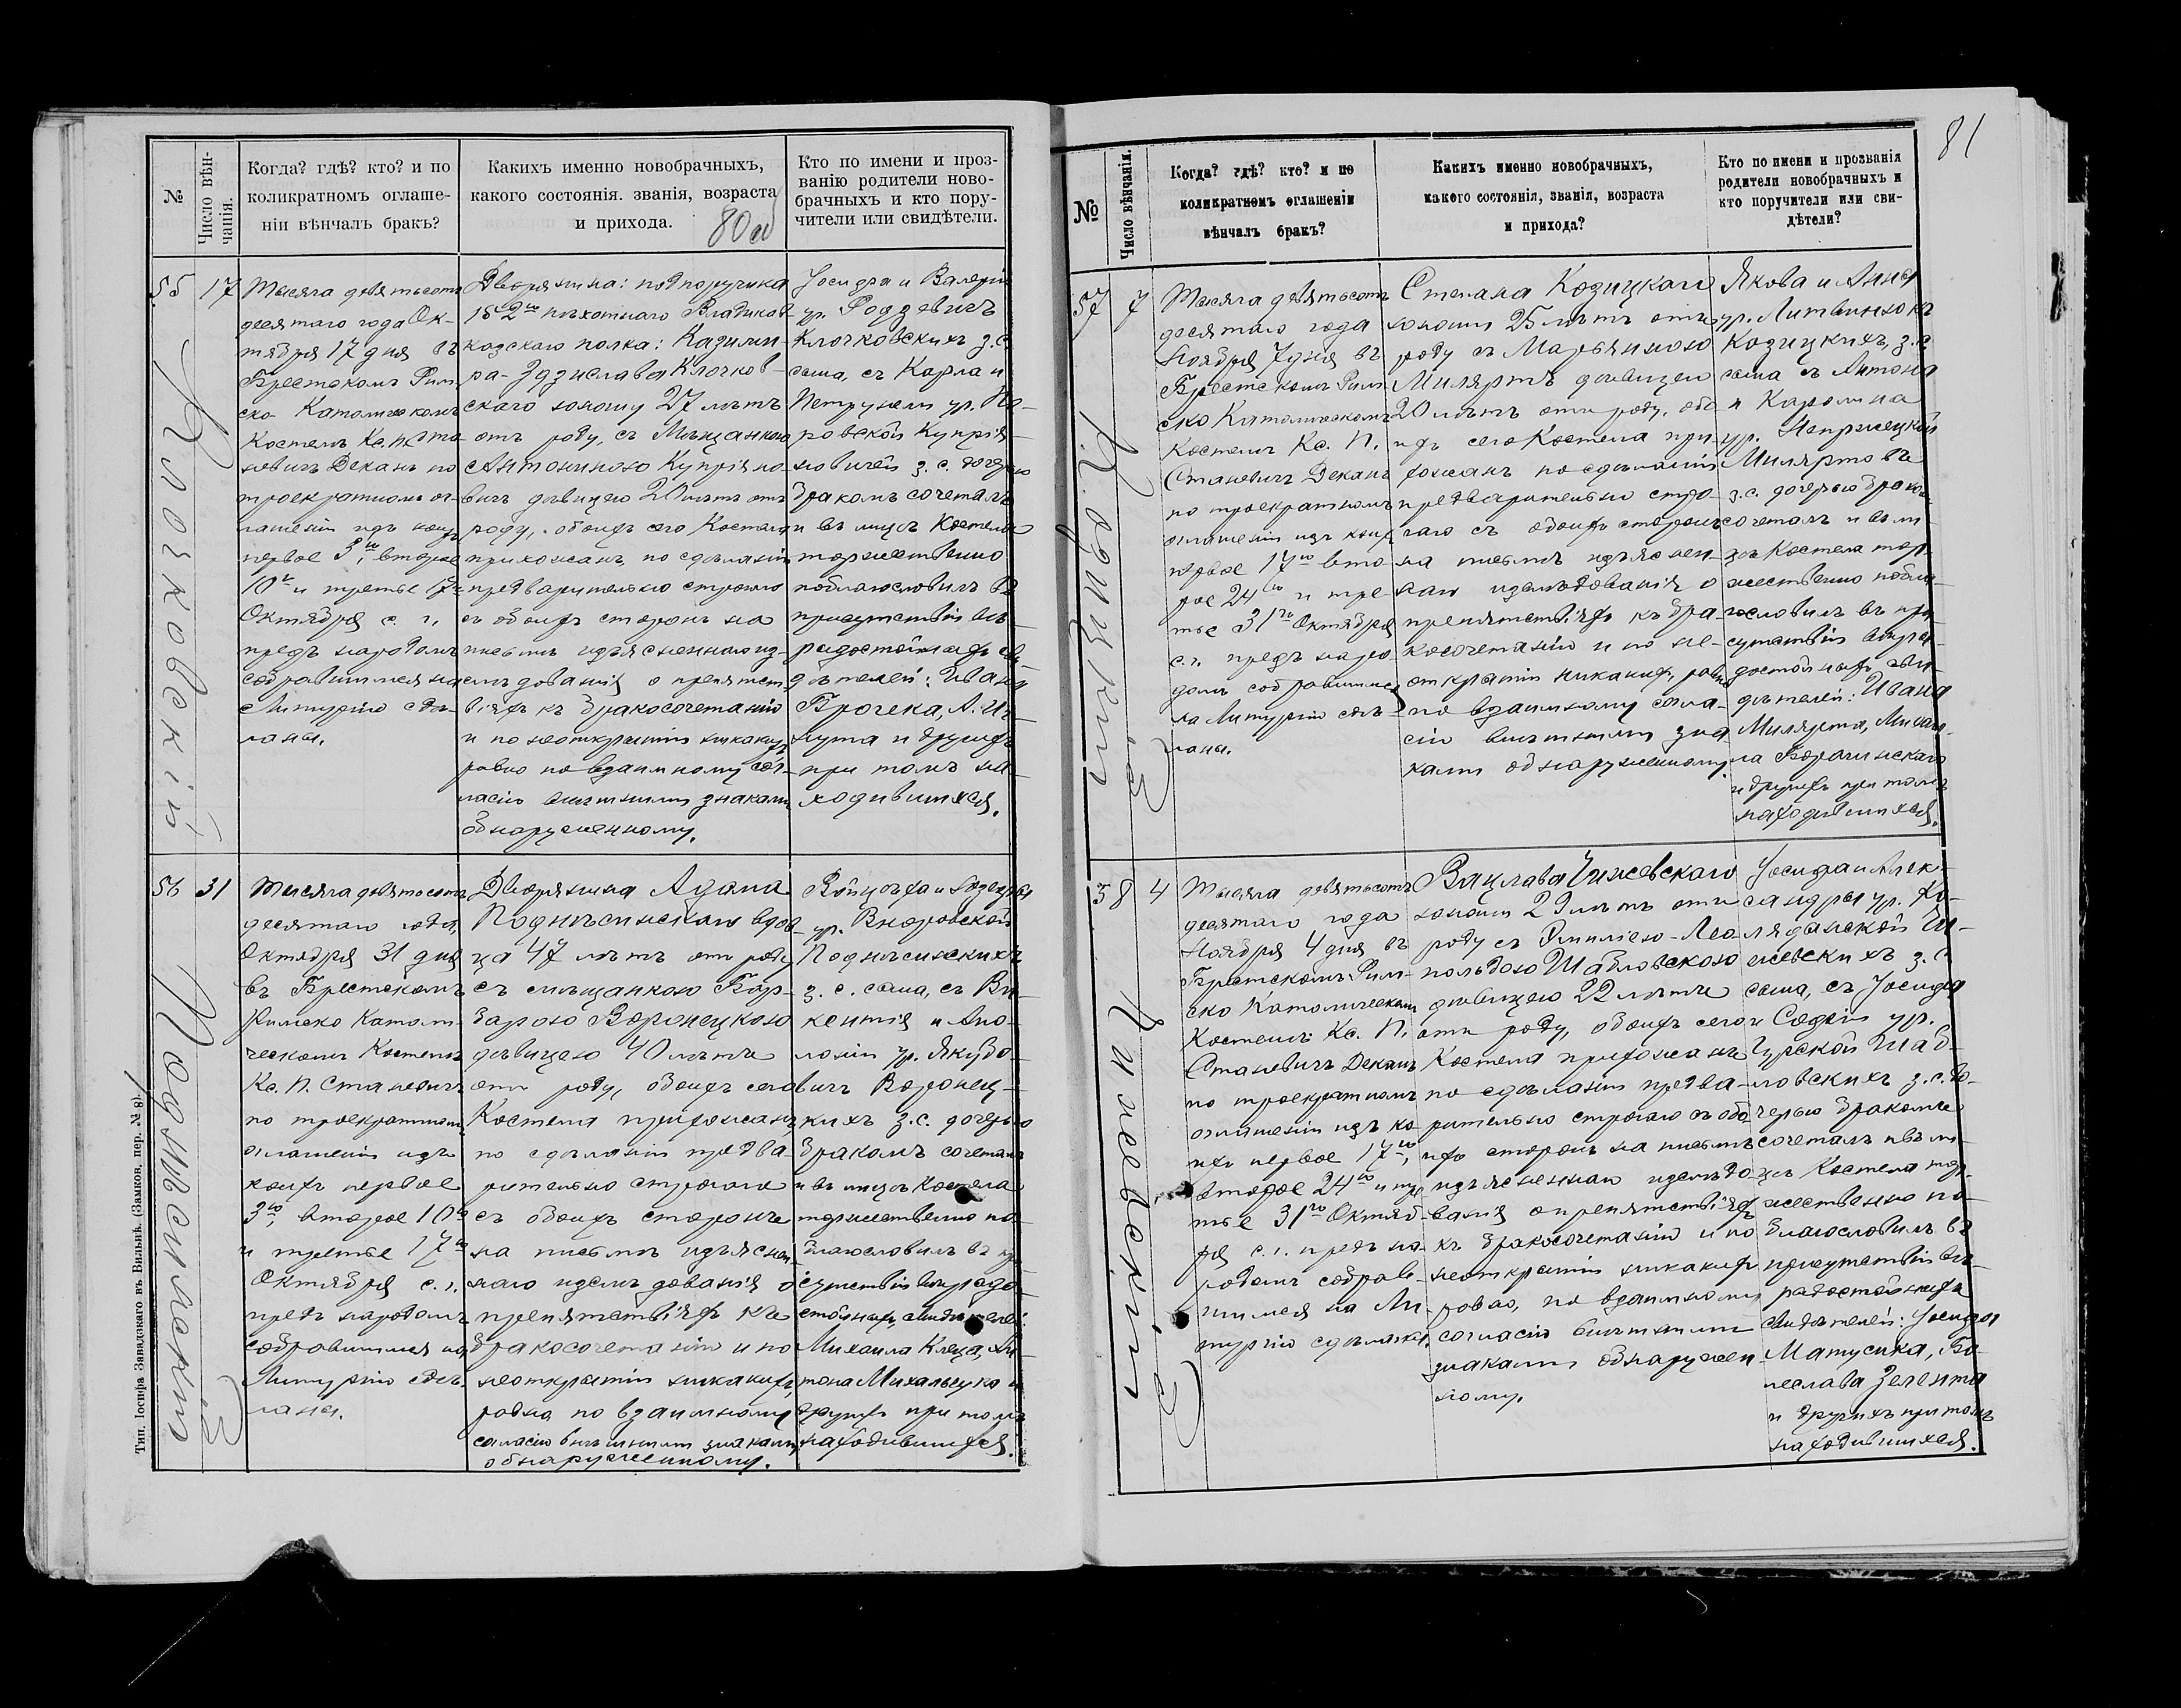 81
№
Число вѣн-
чанія.
Когда? гдѣ? кто? и по
коликратномъ оглаше-
ніи вѣнчалъ бракъ?
Какихъ именно новобрачныхъ,
какого состоянія. званія, возраста
и прихода.
80 об
Кто по имени и проз-
ванію родители ново-
брачныхъ и кто пору-
чители или свидѣтели.
55
17
Клочковскій
Тысяча девятьсотъ
десятаго года Ок-
тября 17 дня въ
Брестскомъ Рим-
ско Католическомъ
Костелѣ Кс. П. Ста-
невичъ Деканъ по
троекратномъ ог-
лашеніи изъ коихъ
первое 3го, второе
10го и третье 17го
Октября с. г.
предъ народомъ
собравшимся на
Литургію сдѣ-
ланы.
Дворянина: подпоручика
152го пѣхотнаго Владикав-
казскаго полка: Казими-
ра-Здзислава Клочков-
скаго юношу 27 лѣтъ
отъ роду, съ Мѣщанкою
Антониною Купріяно-
вичъ дѣвицею 20 лѣтъ отъ
роду, обоихъ сего Костела
прихожанъ, по сдѣланіи
предварительно строгаго
съ обоихъ сторонъ на
письмѣ изъясненнаго из-
слѣдованія о препятст-
віяхъ къ бракосочетанію
и по неоткрытіи никакихъ
равно по взаимному сог-
ласію внѣшними знаками
обнаруженному.
Іосифа и Валеріи
ур. Родзевичъ
Клочковскихъ з. с.
сына, съ Карла и
Петрунели ур. По-
ровской Купрія-
новичей з. с. дочерью
бракомъ сочеталъ
и въ лицѣ Костела
торжественно
поблагословилъ въ
присутствіи вѣ-
радостойныхъ сви-
дѣтелей: Ивана
Брочека, А. Ig-
нута и другихъ
при томъ на-
ходившихся.
56
31
Поднѣсинскій
Тысяча девятьсотъ
десятаго года,
Октября 31 дня
въ Брестскомъ
Римско Католи-
ческомъ Костелѣ
Кс. П. Станевичъ
по троекратномъ
оглашеніи изъ
коихъ первое
3го, второе 10го
и третье 17го
Октября с. г.
предъ народомъ
собравшимся на
Литургію сдѣ-
ланы.
Дворянина Адама
Поднѣсинскаго вдов-
ца 47 лѣтъ отъ роду
съ мѣщанкою Вар-
варою Воронецкою
дѣвицею 40 лѣтъ
отъ роду, обоихъ сего
Костела прихожанъ
по сдѣланіи предва-
рительно строгаго
съ обоихъ сторонъ
на письмѣ изъяснен-
наго изслѣдованія о
препятствіяхъ къ
бракосочетанію и по
неоткрытіи никакихъ,
равно, по взаимному
согласію внѣшними знаками
обнаруженному.
Войцеха и
ур. Вноровской
Поднѣсинскихъ
з. с. сына, съ Ви-
кентія и Апо-
лоніи ур. Якубо-
вичъ Воронец-
кихъ з. с. дочерью
бракомъ сочеталъ
и въ лицѣ Костела
торжественно по-
благословилъ въ при-
сутствіи вѣрадо-
стойныхъ свидѣтелей:
Михаила Клеца, Ан-
тона Михальчука и
другихъ при томъ
находившихся.
Тип. Іосифа Завадзкаго въ Вильнѣ. (Замков. пер. № 8).
№
Число вѣнчанія.
Когда? гдѣ? кто? и по
коликратномъ оглашеніи
вѣнчалъ бракъ?
Какихъ именно новобрачныхъ,
какого состоянія, званія, возраста
и прихода?
Кто по имени и прозванія
родители новобрачныхъ и
кто поручители или сви-
дѣтели?
57
7
Козицкій
Тысяча девятьсотъ
десятаго года
Ноября 7 дня въ
Брестскомъ Рим-
ско Католическомъ
Костелѣ Кс. П.
Станевичъ Деканъ
по троекратномъ
оглашеніи изъ коихъ
первое 17го вто-
рое 24го и тре-
тье 31го Октября
с. г. предъ наро-
домъ собравшимся
на Литургію сдѣ-
ланы.
Степана Козицкаго
юношу 25 лѣтъ отъ
роду съ Марьянною
Милярть дѣвицею
20 лѣтъ отъ роду, обо-
ихъ сего Костела при-
хожанъ по сдѣланіи
предварительно стро-
гаго съ обоихъ сторонъ
на письмѣ изъяснен-
наго изслѣдованія о
препятствіяхъ къ бра-
косочетанію и по не-
открытіи никакихъ, равно
по взаимному согла-
сію внѣшними зна-
ками обнаруженному.
Якова и Анны
ур. Литвинюкъ
Козицкихъ, з. с.
сына съ Антона
и Каролина
ур. Непржецкой
Милярто въ
з. с. дочерью браком
сочеталъ и въ ли-
цѣ Костела тор-
жественно побла-
гословилъ въ при-
сутствіи вѣра-
достойныхъ сви-
дѣтелей: Ивана
Милярта, Михаи-
ла Ворочинскаго
и другихъ при томъ
находившихся.
58
4
Чижевскій
Тысяча девятьсотъ
десятаго года
Ноября 4 дня въ
Брестскомъ Рим-
ско Католическомъ
Костелѣ Кс. П.
Станевичъ Деканъ
по троекратномъ
оглашеніи изъ ко-
ихъ первое 17го,
второе 24го и тре-
тье 31го Октяб-
ря с. г. предъ на-
родомъ собрав-
шимся на Ли-
тургію сдѣланы.
Вацлава Чижевскаго
юношу 29 лѣтъ отъ
роду съ Эмиліею-Лео-
польдою Шабловскою
дѣвицею 22 лѣтъ
отъ роду, обоихъ сего
Костела прихожанъ
по сдѣланіи предва-
рительно строгаго съ обо-
ихъ сторонъ на письмѣ
изъясненнаго изслѣдо-
ванія о препятствіяхъ
къ бракосочетанію и по
неоткрытіи никакихъ
равно, по взаимному
согласію внѣшними
знаками обнаружен-
ному.
Іосифа и Алек-
сандры ур. Ко-
лядзнской Чи-
жевскихъ з. с.
сына, съ Іосифа
и Софіи ур.
Гурской Шаб-
ловскихъ з. с. до-
черью бракомъ
сочеталъ и въ ли-
цѣ Костела тор-
жественно по-
благословилъ въ
присутствіи вѣ-
радостойныхъ
свидѣтелей: Іосифа
Матусика, Бо-
леслава Зелента
и другихъ при томъ
находившихся.